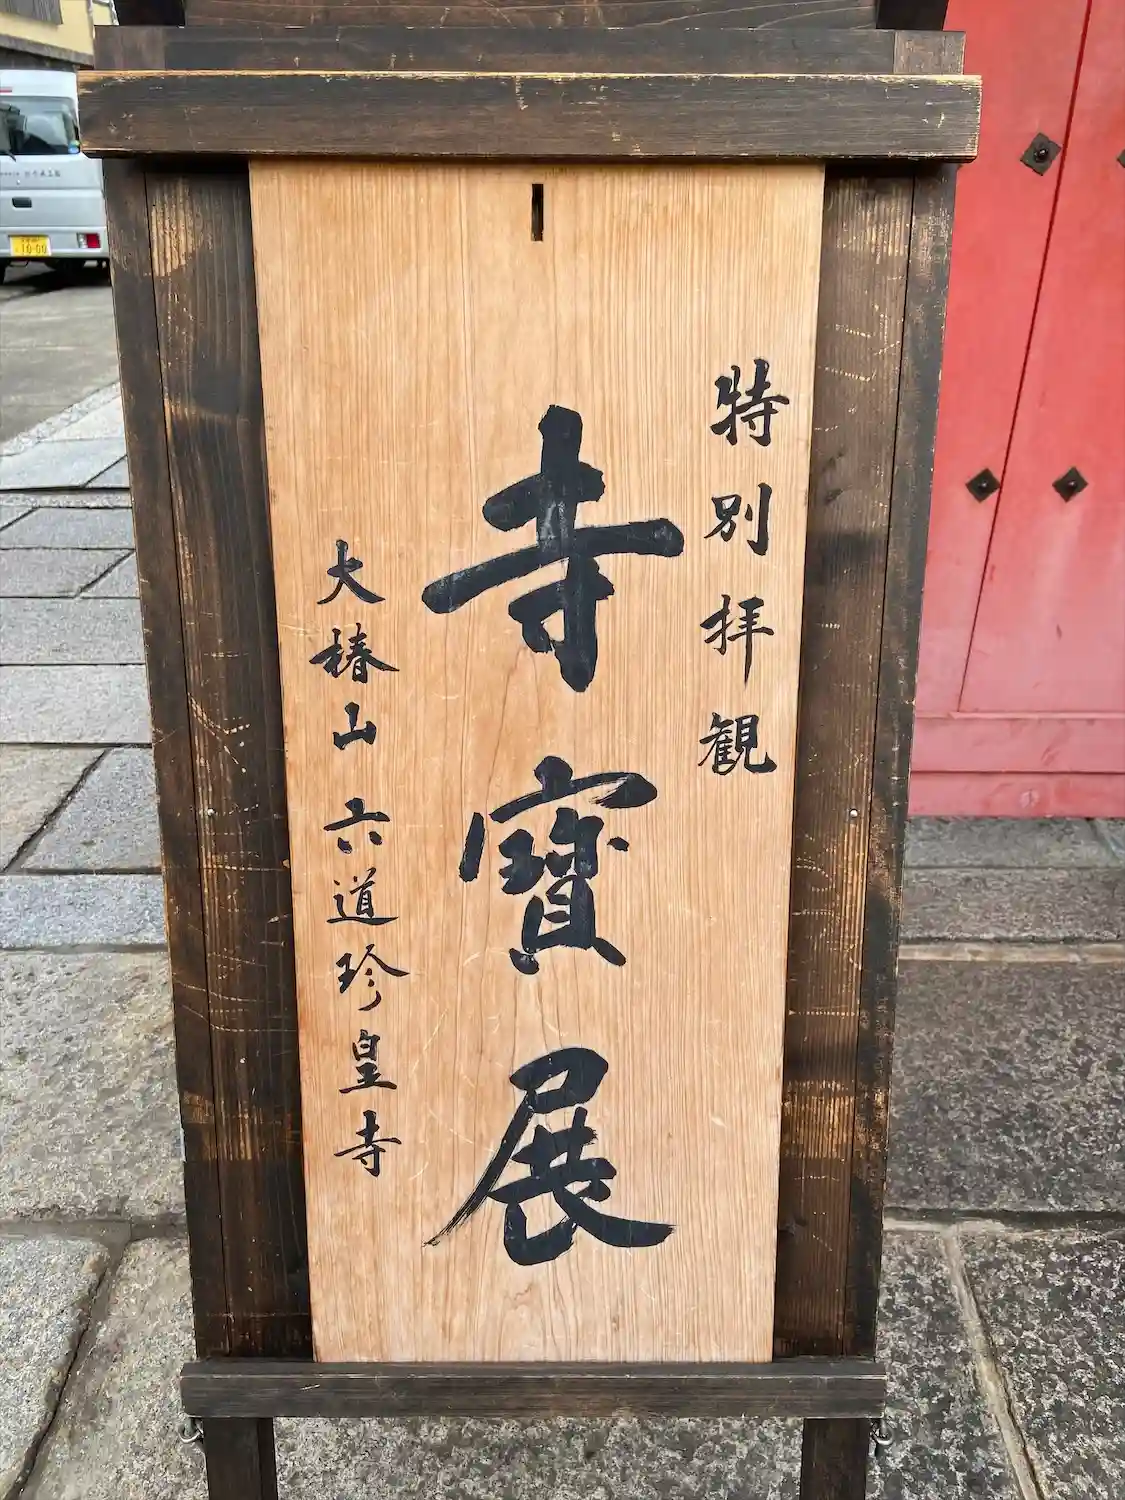 特別拝観
寺寳展
大椿山 六道珍皇寺
1000